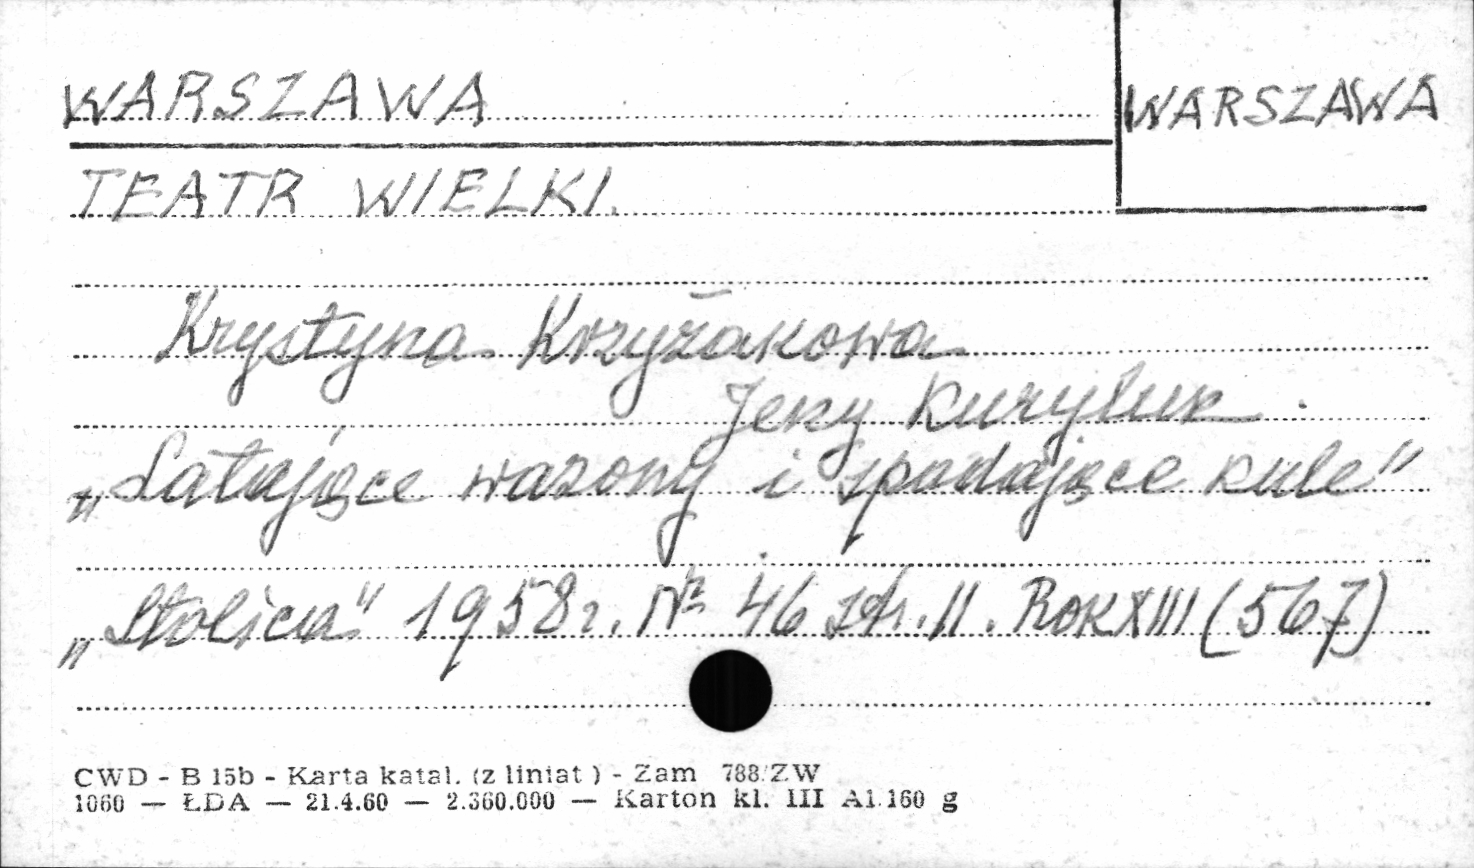 WARSZAWA
WARSZAWA
TEATR WIELKI.
Krystyna Krzyżakowa
Jerzy Kuryluk.
„Latające wazony i spadające kule"
„Stolica" 1958 r. Nr 46 str. 11. Rok XIII (567)
CWD - B 15b - Karta katal. (z liniat ) - Zam 788/ZW
1060 — ŁDA — 21.4.60 — 2.360.000 — Karton kl. III A1.160 g